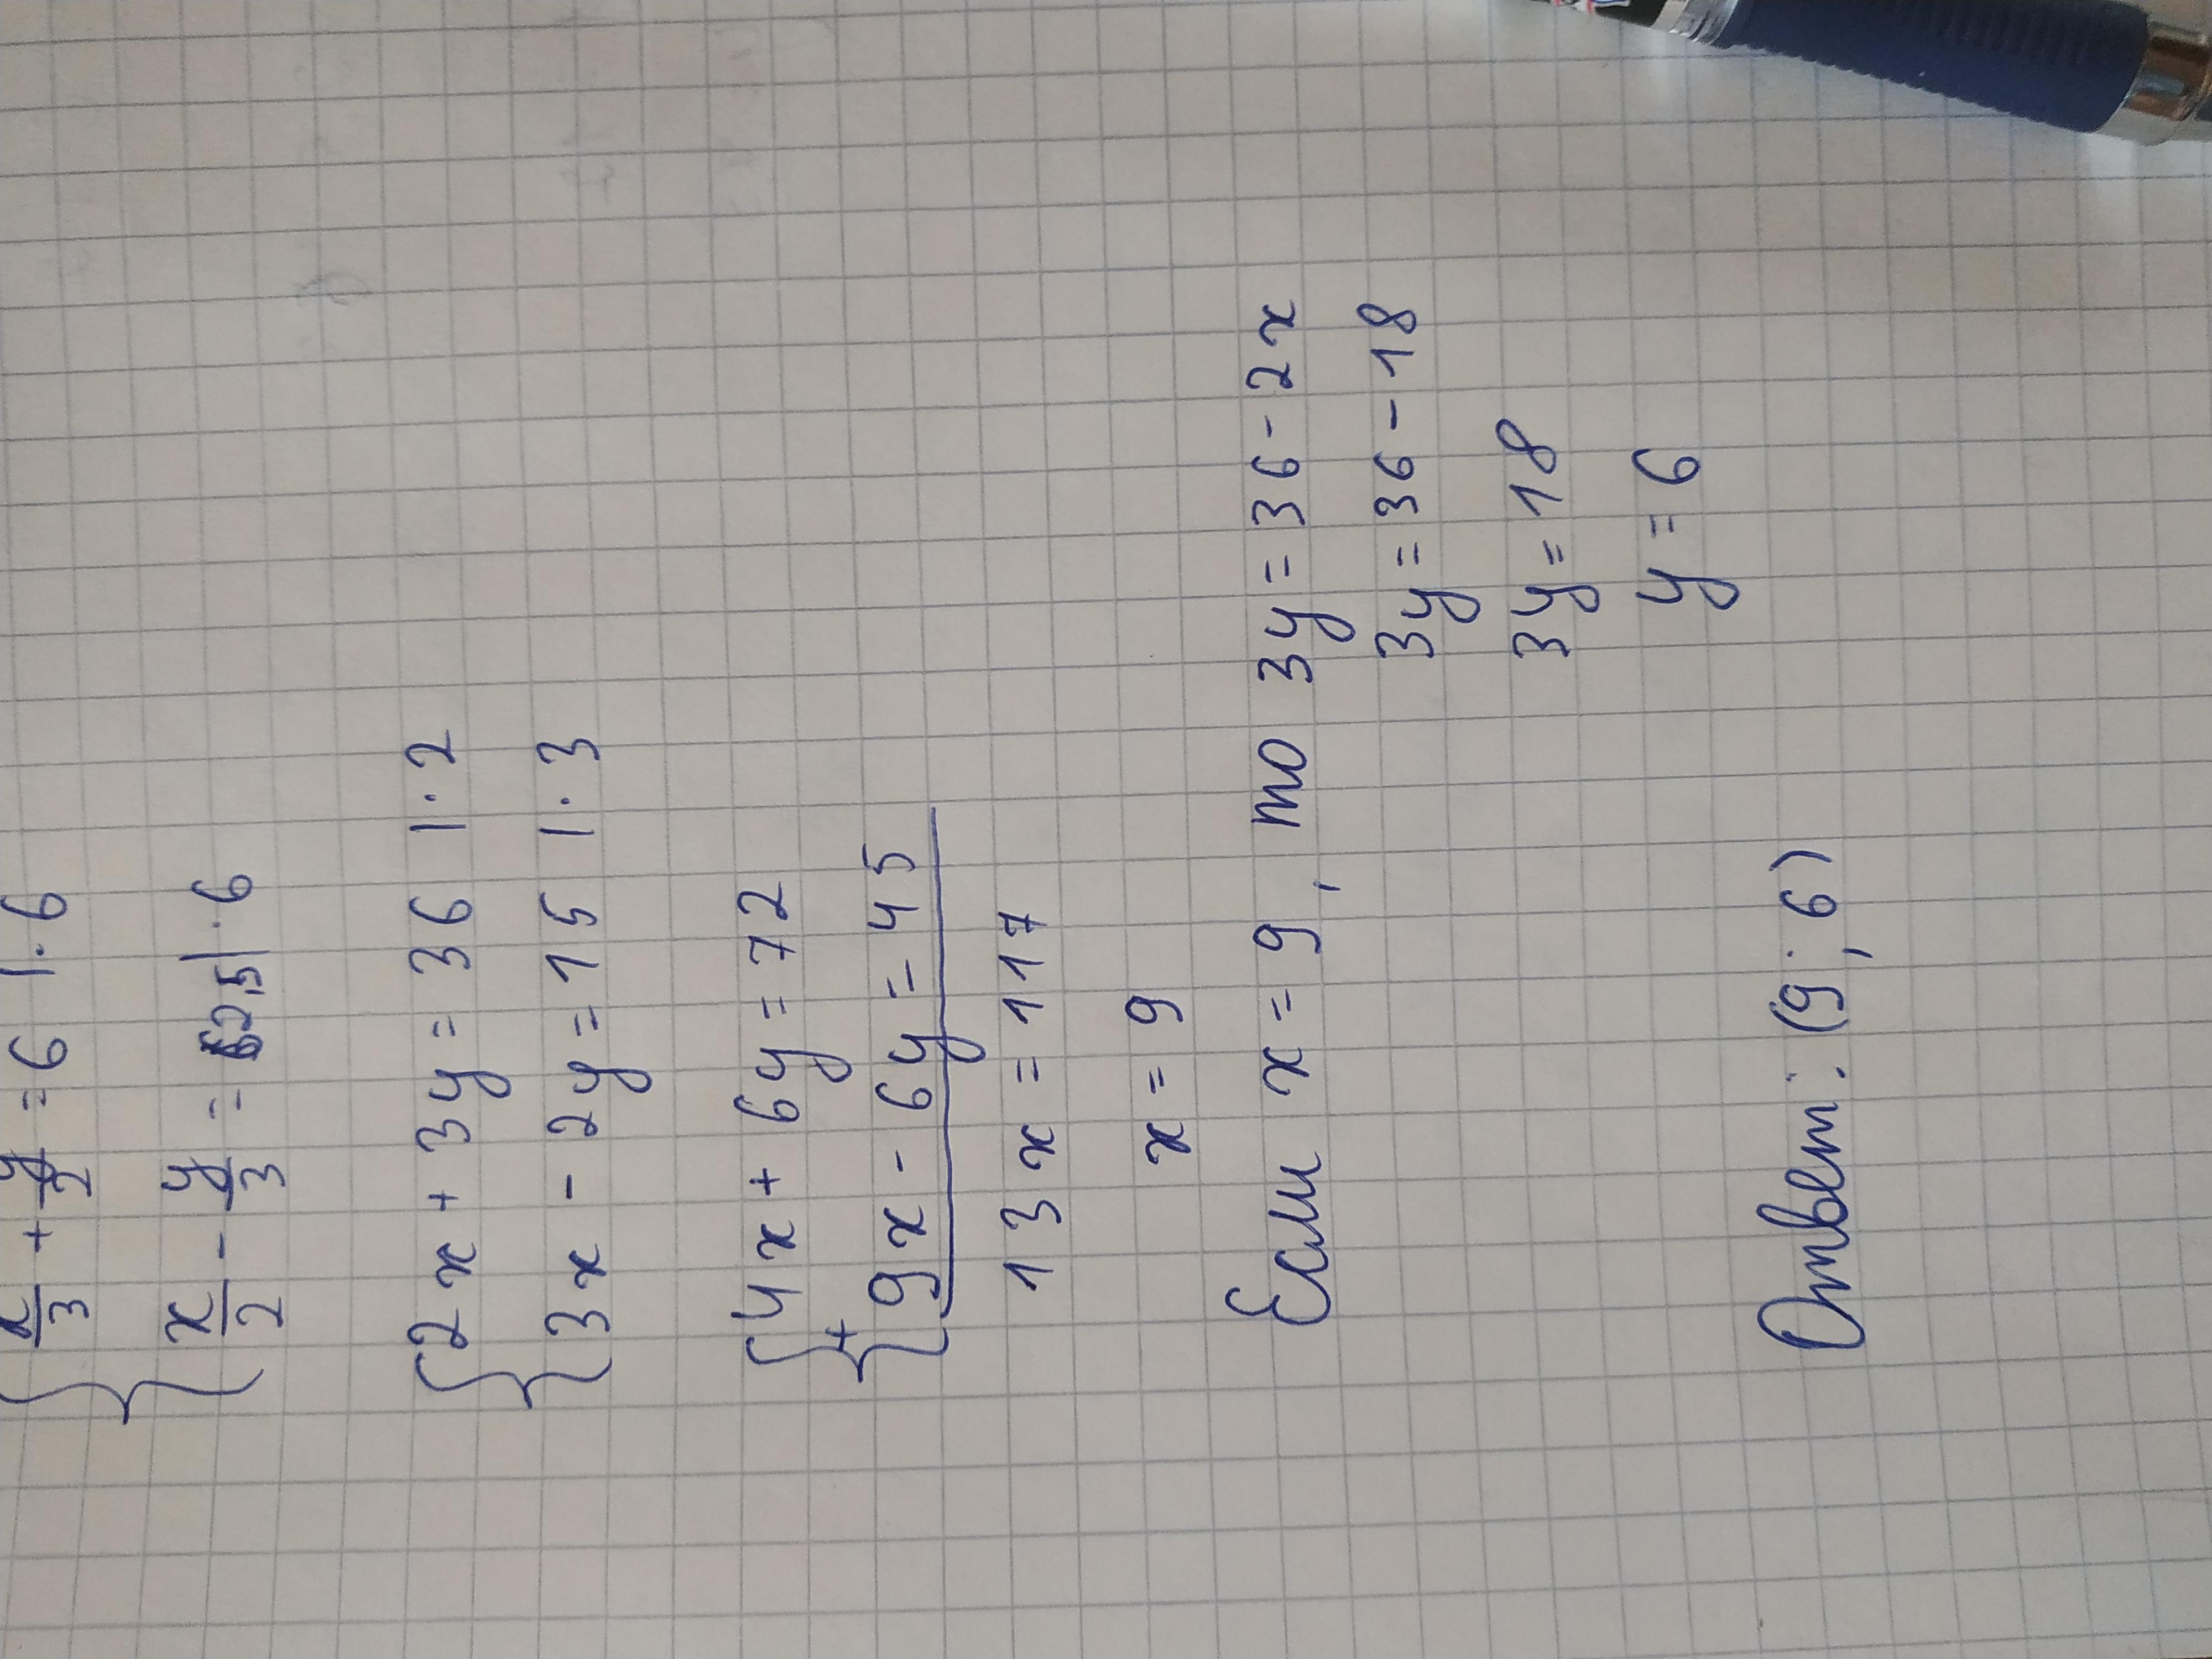 x/3 + y/2 = 6 |·6
x/2 - y/3 = 2,5 |·6
2x + 3y = 36 |·2
3x - 2y = 15 |·3
4x + 6y = 72
+
9x - 6y = 45
13x = 117
x = 9
Если x = 9, то 3y = 36 - 2x
3y = 36 - 18
3y = 18
y = 6
Ответ: (9; 6)